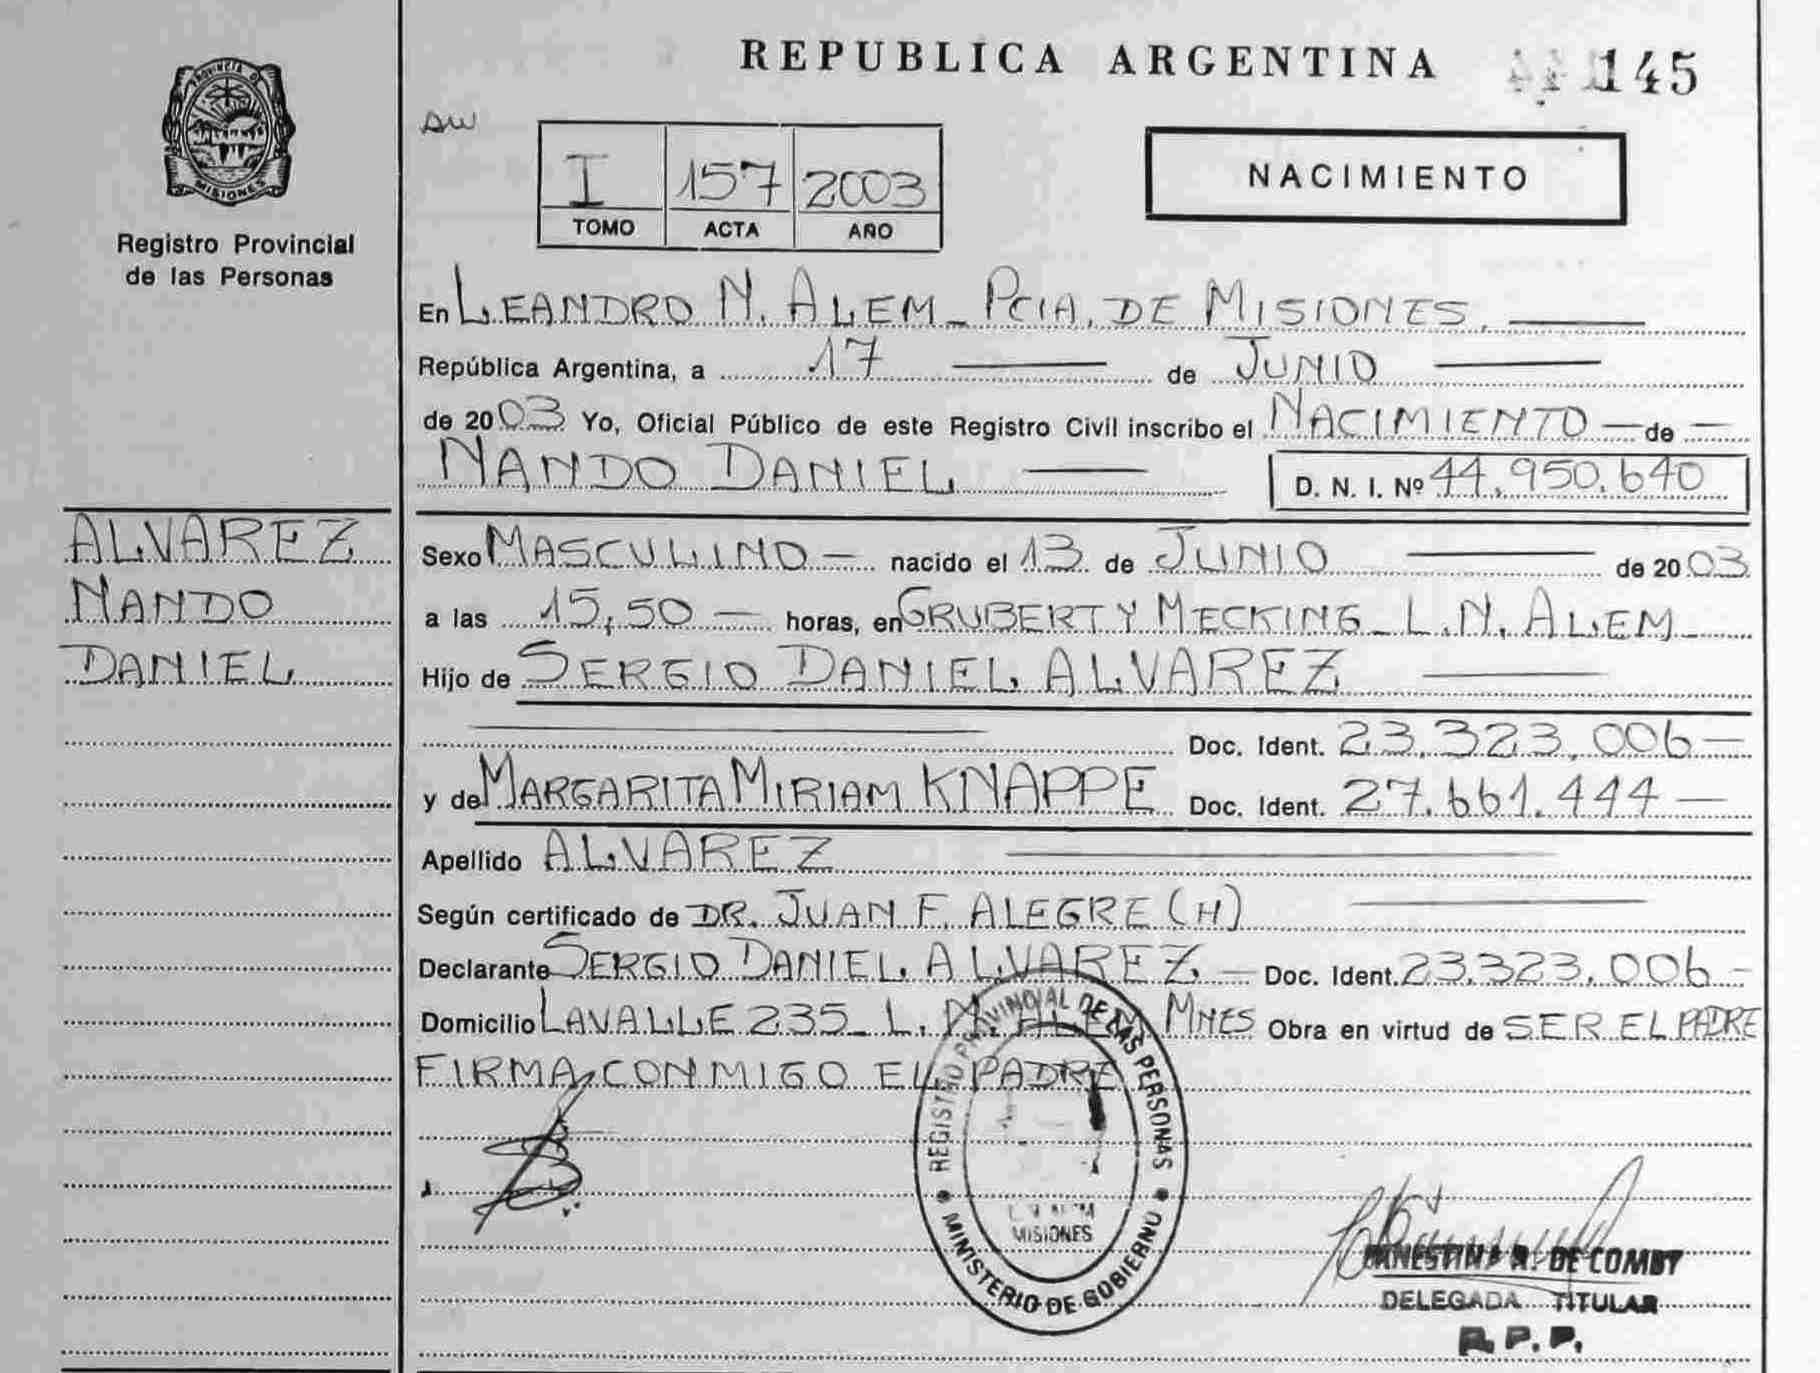 REPUBLICA ARGENTINA
145
PROVINCIA DE
MISIONES
Registro Provincial
de las Personas
AW
I 157 2003
TOMO ACTA AÑO
NACIMIENTO
En LEANDRO N. ALEM_ PCIA. DE MISIONES.
República Argentina, a 17 de JUNIO
de 2003 Yo, Oficial Público de este Registro Civil inscribo el NACIMIENTO — de —
NANDO DANIEL
D. N. I. Nº 44.950.640
ALVAREZ
NANDO
DANIEL
Sexo MASCULINO — nacido el 13 de JUNIO de 2003
a las 15,50 — horas, en GRUBERT Y MECKING_ L.N. ALEM_
Hijo de SERGIO DANIEL ALVAREZ
Doc. Ident. 23.323.006 —
y de MARGARITA MIRIAM KNAPPE Doc. Ident. 27.661.444 —
Apellido ALVAREZ
Según certificado de DR. JUAN F. ALEGRE (H)
Declarante SERGIO DANIEL ALVAREZ — Doc. Ident. 23.323.006 —
Domicilio LAVALLE 235_ L. N. ALEM MNES Obra en virtud de SER EL PADRE
FIRMA CONMIGO EL PADRE
REGISTRO PROVINCIAL DE LAS PERSONAS
MISIONES
MINISTERIO DE GOBIERNO
DE COMBY
DELEGADA TITULAR
R. P. P.